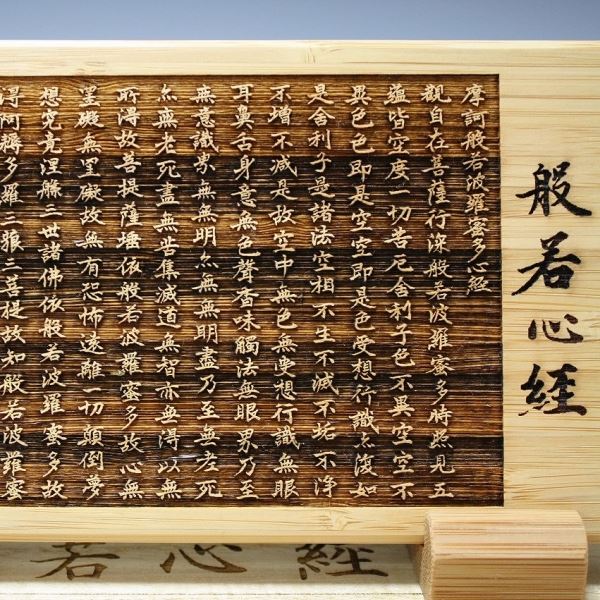 般若心経
摩訶般若波羅蜜多心経
観自在菩薩行深般若波羅蜜多時照見五
蘊皆空度一切苦厄舎利子色不異空空不
異色色即是空空即是色受想行識亦復如
是舎利子是諸法空相不生不滅不垢不浄
不増不減是故空中無色無受想行識無眼
耳鼻舌身意無色声香味触法無眼界乃至
無意識界無無明亦無無明尽乃至無老死
亦無老死尽無苦集滅道無智亦無得以無
所得故菩提薩埵依般若波羅蜜多故心無
罣礙無罣礙故無有恐怖遠離一切顛倒夢
想究竟涅槃三世諸佛依般若波羅蜜多故
得阿耨多羅三藐三菩提故知般若波羅蜜
若心経